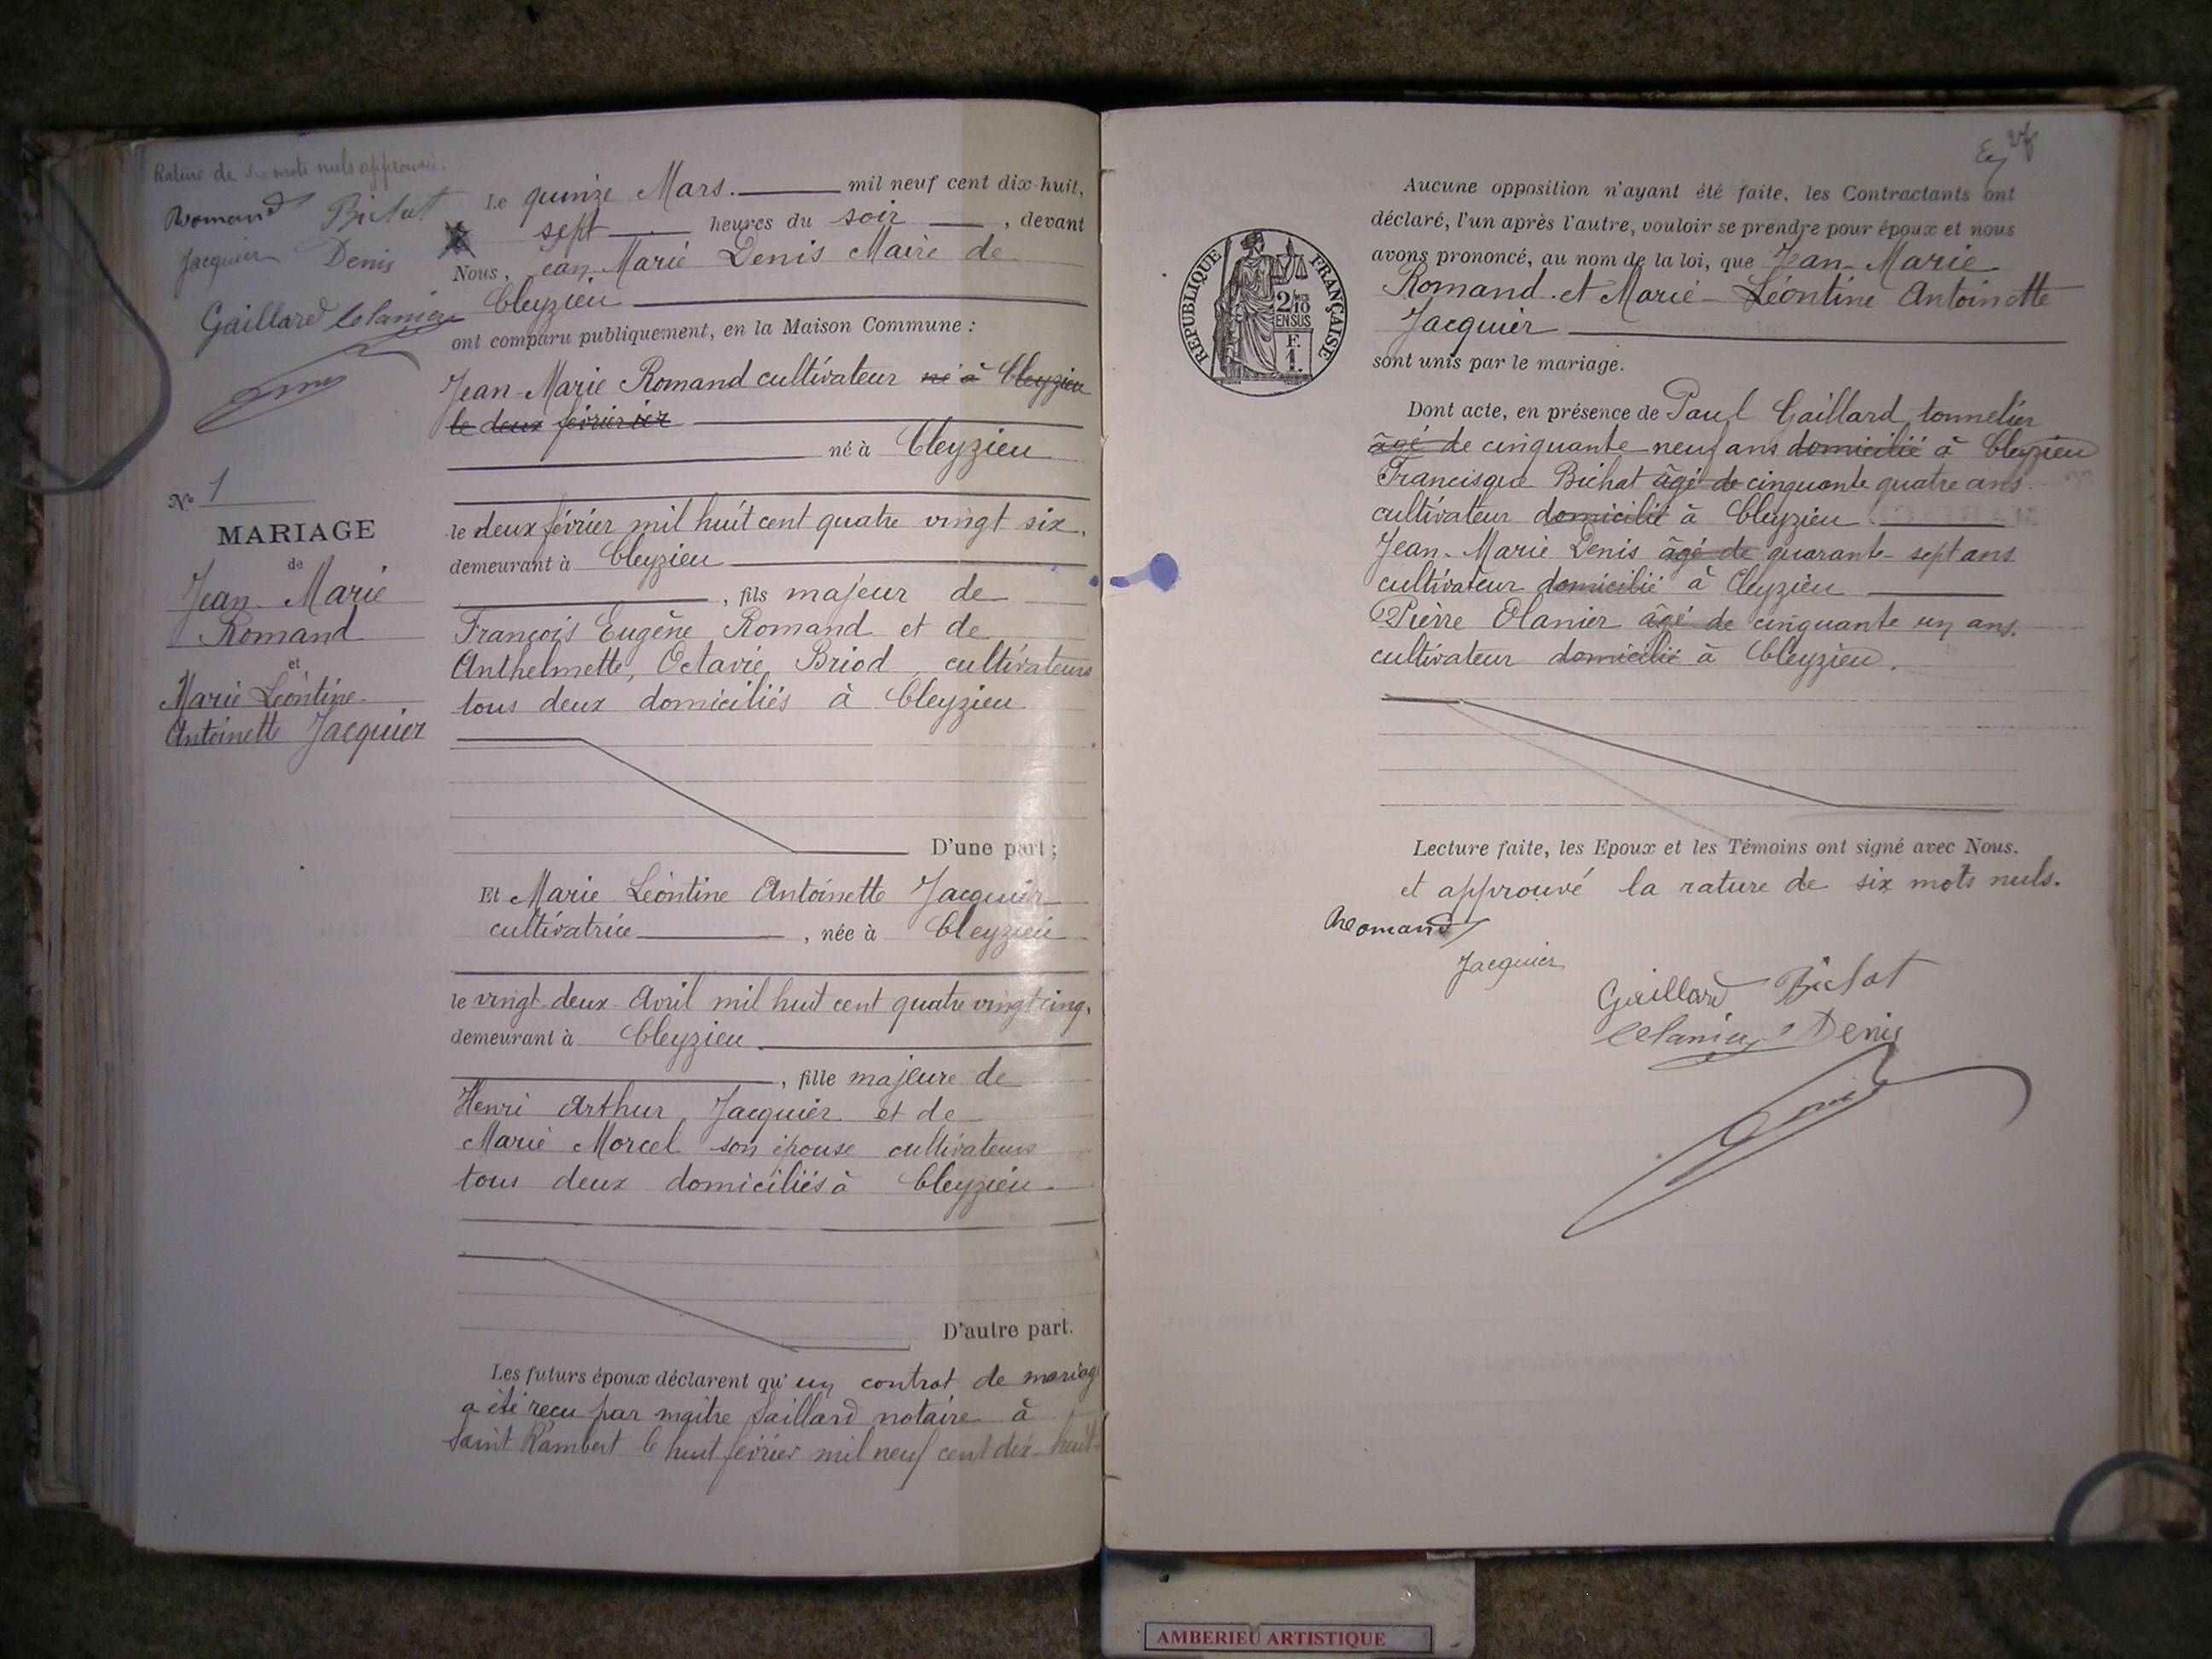 Rature de six mots nuls approuvée.
Romand Bichat
Jacquier Denis
Gaillard
Le quinze Mars. mil neuf cent dix-huit,
sept heures du soir , devant
Nous, Jean Marie Denis Maire de
Cleyzieu
ont comparu publiquement, en la Maison Commune :
Jean-Marie Romand cultivateur né à Cleyzieu
le deux février
né à Cleyzieu
le deux février mil huit cent quatre vingt six.
demeurant à Cleyzieu
, fils majeur de
François Eugêne Romand et de
Anthelmette, Octavie Briod cultivateurs
tous deux domiciliés à Cleyzieu
D'une part ;
Et Marie Léontine Antoinette Jacquier
cultivatrice , née à Cleyzieu
le vingt-deux Avril mil huit cent quatre vingt cinq.
demeurant à Cleyzieu
, fille majeure de
Henri Arthur Jacquier et de
Marie Morcel son épouse cultivateurs
tous deux domiciliés à Cleyzieu
D'autre part.
Les futurs époux déclarent qu'un contrat de mariage
a été reçu par maître notaire à
Saint Rambert le huit février mil neuf cent dix-huit
No 1
MARIAGE
de
Jean-Marie
Romand
et
Marie Léontine
Antoinette Jacquier
REPUBLIQUE FRANÇAISE
2/10
EN SUS
F.
1.
Aucune opposition n'ayant été faite, les Contractants ont
déclaré, l'un après l'autre, vouloir se prendre pour époux et nous
avons prononcé, au nom de la loi, que Jean-Marie
Romand et Marie-Léontine Antoinette
Jacquier
sont unis par le mariage.
Dont acte, en présence de Paul Gaillard tonnelier
âgé de cinquante neuf ans domicilié à Cleyzieu
Francisque Bichat âgé de cinquante quatre ans
cultivateur domicilié à Cleyzieu.
Jean-Marie Denis âgé de quarante-sept ans
cultivateur domicilié à Cleyzieu
Pierre Olanier âgé de cinquante un ans.
cultivateur domicilié à Cleyzieu.
Lecture faite, les Epoux et les Témoins ont signé avec Nous.
et approuvé la rature de six mots nuls.
Romand
Jacquier
Gaillard Bichat
Denis
AMBERIEU ARTISTIQUE